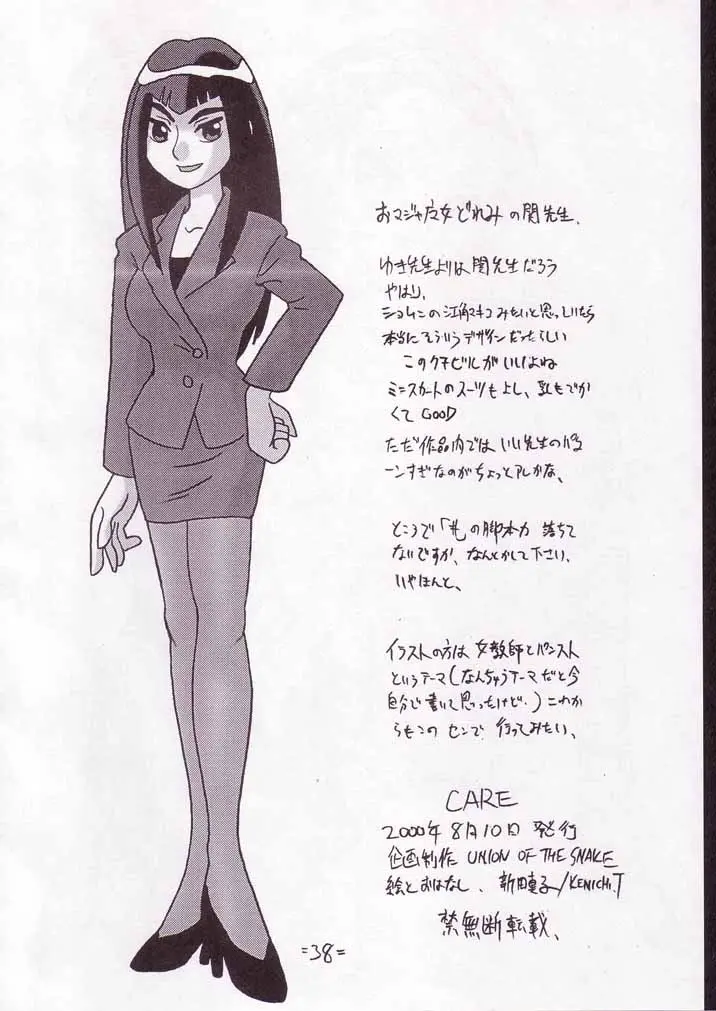 おマジャ魔女どれみの関先生、
ゆき先生よりは関先生だろう
やはり、
ショムニの江角マキコみたいと思っていたら
本当にそういうデザインだったらしい
このクチビルがいいよね
ミニスカートのスーツもよし、乳もでか
くてGOOD
ただ作品内ではいい先生の
ーンすぎなのがちょっとアレかな、
ところで「#の脚本力 落ちて
ないですか、なんとかして下さい、
いやほんと、
イラストの方は女教師とパンスト
というテーマ(なんちゅうテーマだと今
自分で書いて思ったけど・)これか
らもこのセンで行ってみたい、
CARE
2000年8月10日 発行
企画制作 UNION OF THE SNAKE
絵とおはなし、新田真子/KENICHI.T
禁無断転載、
=38=